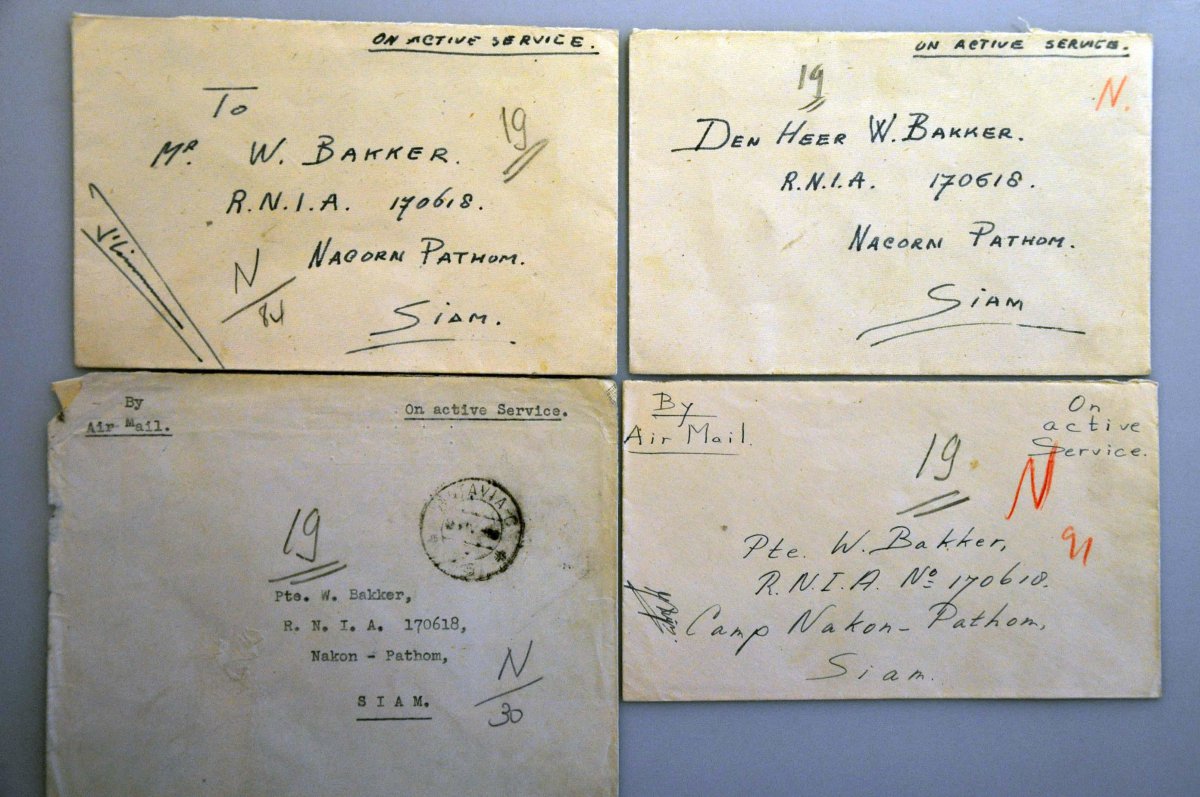 ON ACTIVE SERVICE.
To
19
MR. W. BAKKER.
R.N.I.A. 170618.
NACORN PATHOM.
N
84
SIAM.
ON ACTIVE SERVICE.
19
N.
DEN HEER W. BAKKER.
R.N.I.A. 170618.
NACORN PATHOM.
SIAM
By
Air Mail.
On active Service.
BATAVIA-C
19
Pte. W. Bakker,
R. N. I. A. 170618,
Nakon - Pathom,
N
30
SIAM.
By
Air Mail.
On
active
Service.
19
N
91
Pte. W. Bakker,
R.N.I.A. No 170618.
Camp Nakon-Pathom,
Siam.